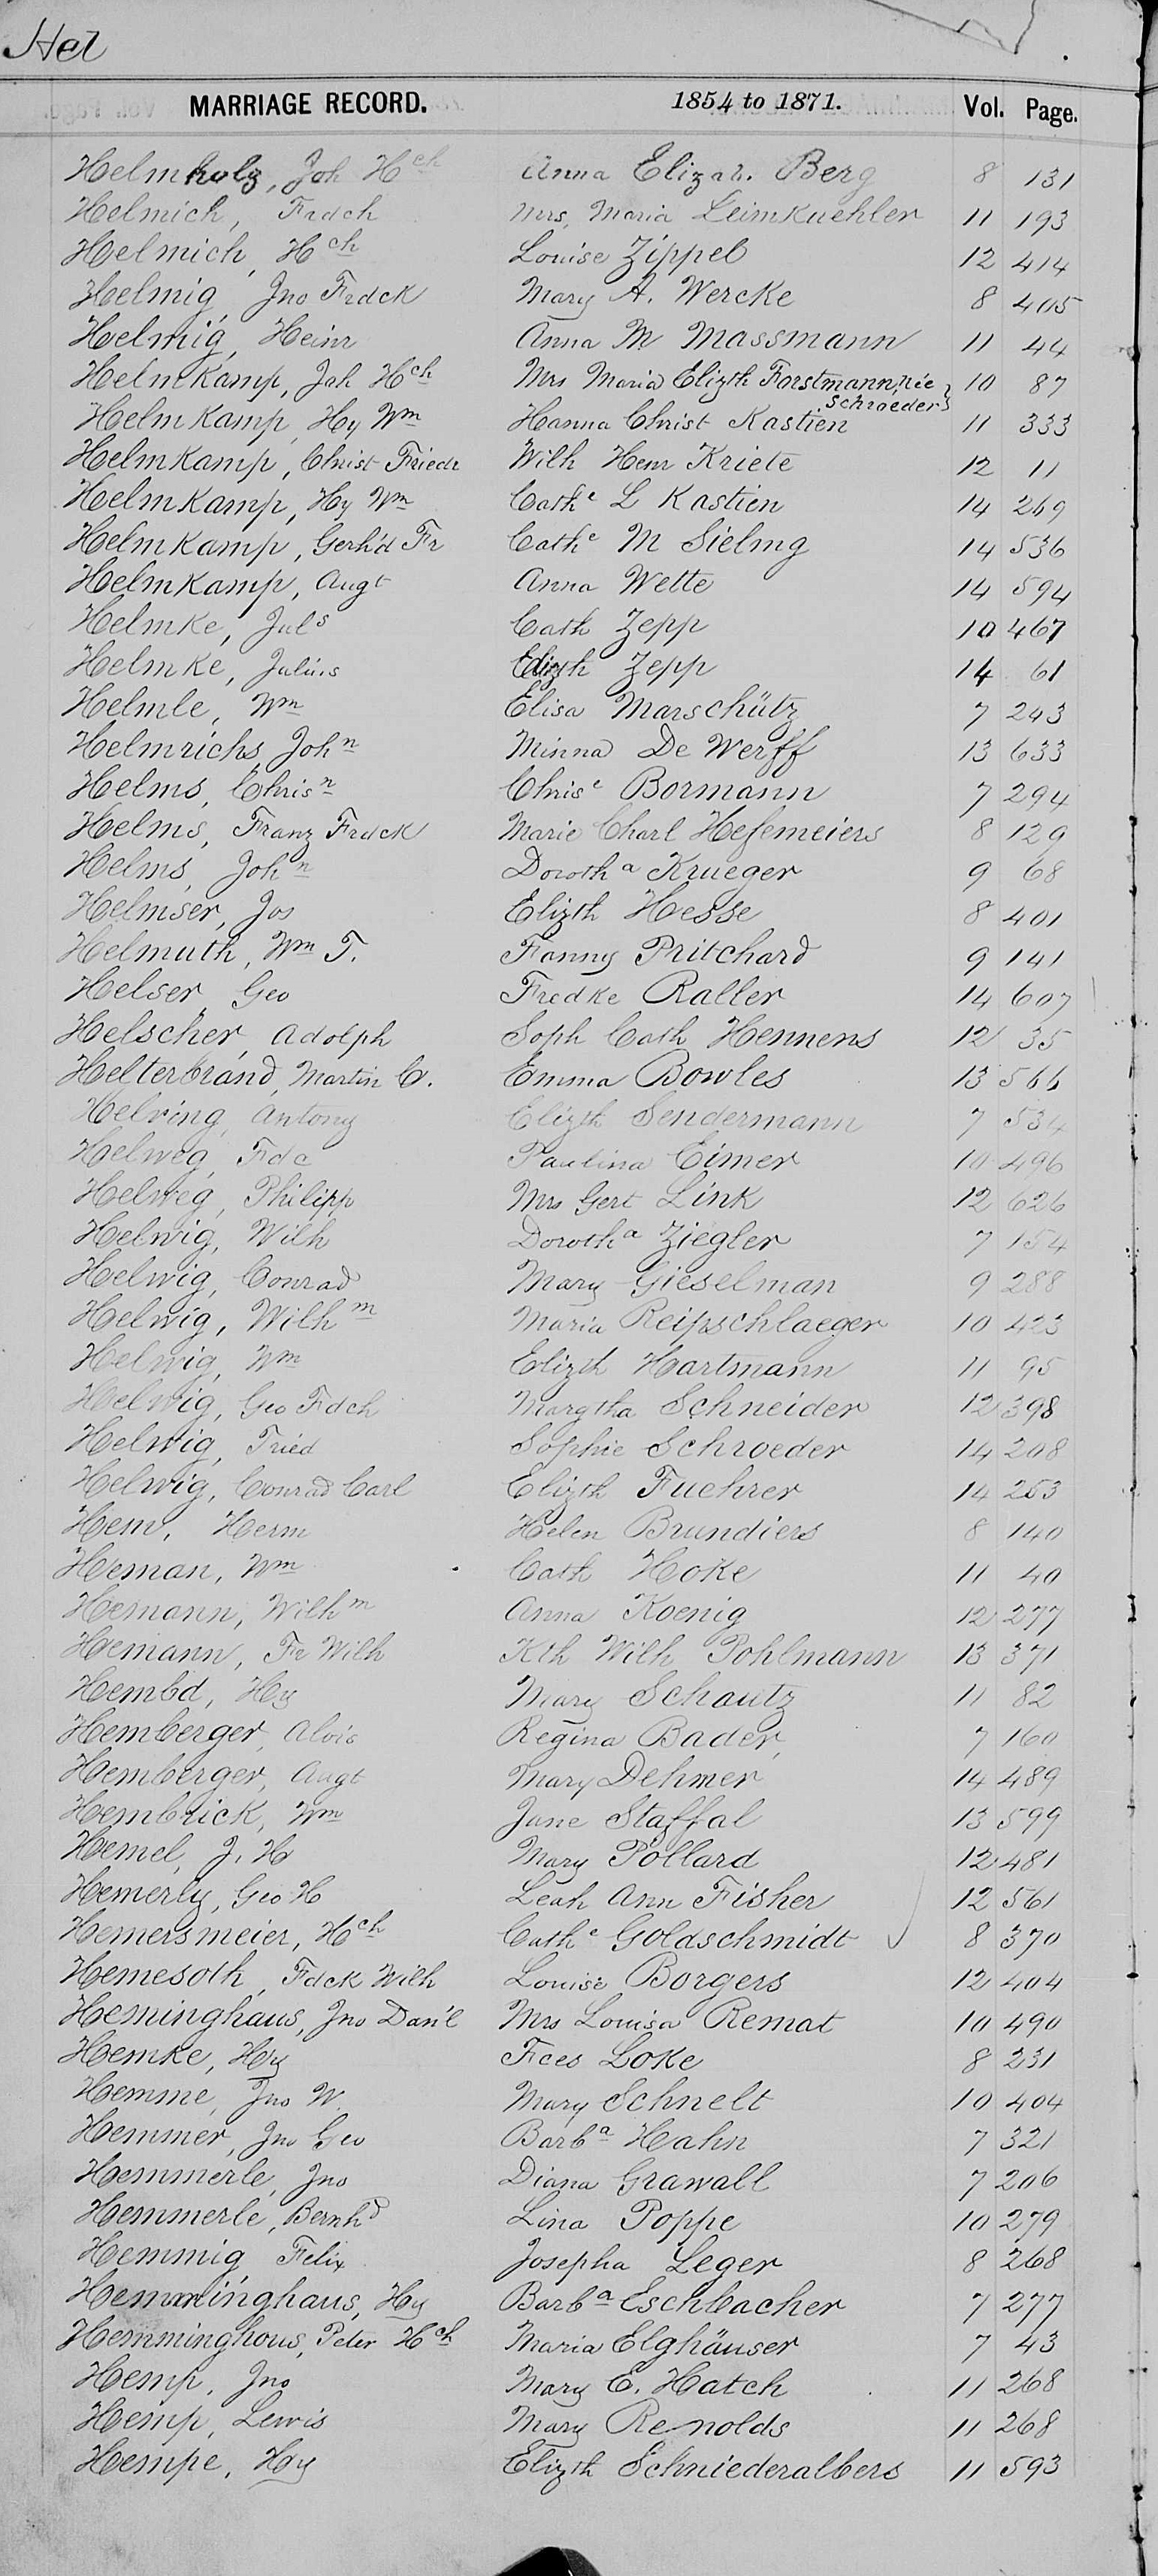 Hel
MARRIAGE RECORD. 1854 to 1871. Vol. Page.
Helmholz, Joh Hch Anna Elizab. Berg 8 131
Helmich, Frdch Mrs. Maria Leimkuehler 11 193
Helmich, Hch Louise Zippel 12 414
Helmig, Jno Frdck Mary A. Wercke 8 405
Helmig, Heinr Anna M Massmann 11 44
HelmKamp, Joh Hch Mrs Maria Elizth Forstmann, née Schroeder 10 87
HelmKamp, Hy Wm Hanna Christ Kastien 11 333
HelmKamp, Christ Friedr Wilh Henr Kriete 12 11
HelmKamp, Hy Wm Cathe L Kastien 14 269
HelmKamp, Gerh'd Fr Cathe M Sielmg 14 536
HelmKamp, Augt Anna Wette 14 594
Helmke, Juls Cath Zepp 10 467
Helmke, Julius Elizth Zepp 14 61
Helmle, Wm Elisa Marschütz 7 243
Helmrichs, John Minna De Werff 13 633
Helms, Chrisn Chrise Bormann 7 294
Helms, Franz Frdck Marie Charl Hefemeiers 8 129
Helms, John Dorotha Krueger 9 68
Helmser, Jos Elizth Hesse 8 401
Helmuth, Wm T. Fanny Pritchard 9 141
Helser, Geo Fredke Raller 14 607
Helscher, Adolph Soph Cath Hennens 12 35
Helterbrand, Martin C. Emma Bowles 13 566
Helving, Antony Elizth Sendermann 7 534
Helweg, Fdc Paulina Eimer 10 496
Helweg, Philipp Mrs Gert Link 12 626
Helwig, Wilh Dorotha Ziegler 7 154
Helwig, Conrad Mary Gieselman 9 288
Helwig, Wilhm Maria Reipschlaeger 10 423
Helwig, Wm Elizth Hartmann 11 95
Helwig, Geo Fdch Margtha Schneider 12 398
Helwig, Fried Sophie Schroeder 14 208
Helwig, Conrad Carl Elizth Fuehrer 14 253
Hem, Herm Helen Brundiers 8 140
Heman, Wm Cath Hoke 11 40
Hemann, Wilhm Anna Koenig 12 277
Hemann, Fr Wilh Kth Wilh Pohlmann 13 371
Hembd, Hy Mary Schautz 11 82
Hemberger, Alois Regina Bader, 7 160
Hemberger, Augt Mary Dehmer 14 489
Hembrick, Wm Jane Staffal 13 599
Hemel, J. H Mary Pollard 12 481
Hemerly, Geo H Leah Ann Fisher 12 561
Hemersmeier, Hch Cathe Goldschmidt 8 370
Hemesoth, Fdck Wilh Louise Borgers 12 404
Heminghaus, Jno Dan'l Mrs Louisa Remat 10 490
Hemke, Hy Fces Loke 8 231
Hemme, Jno W. Mary Schnelt 10 404
Hemmer, Jno Geo Barba Hahn 7 321
Hemmerle, Jno Diana Grawall 7 206
Hemmerle, Bernhd Lina Poppe 10 279
Hemmig, Felix Josepha Leger 8 268
Hemminghaus, Hy Barba Eschbacher 7 277
Hemminghous, Peter Hch Maria Elghäuser 7 43
Hemp, Jno Mary E. Hatch 11 268
Hemp, Lewis Mary Renolds 11 268
Hempe, Hy Elizth Schniederalbers 11 593